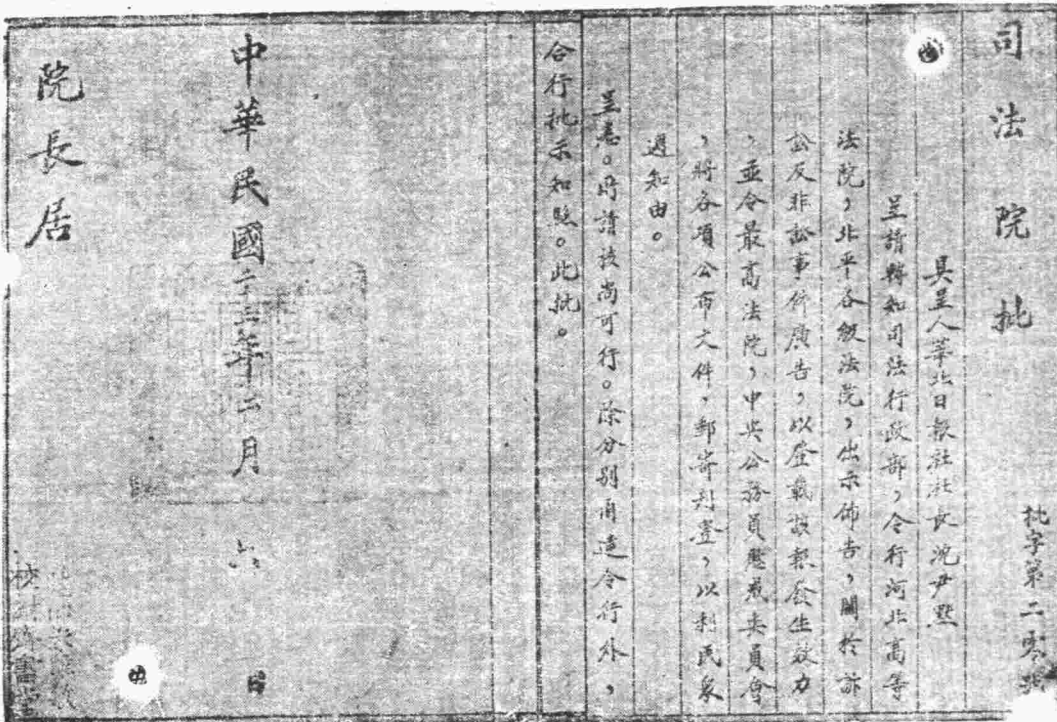 司法院批
批字第二零號
具呈人華北日報社社長沈尹默
呈請轉知司法行政部，令行河北高等
法院，北平各級法院，出示佈告，關於訴
訟及非訟事件廣告，以登載該報發生效力
，並令最高法院，中央公務員懲戒委員會
，將各項公布文件，郵寄刊登，以利民衆
週知由。
呈悉。所請該尚可行。除分別函達令行外，
合行批示知照。此批。
中華民國二十三年二月六日
院長居